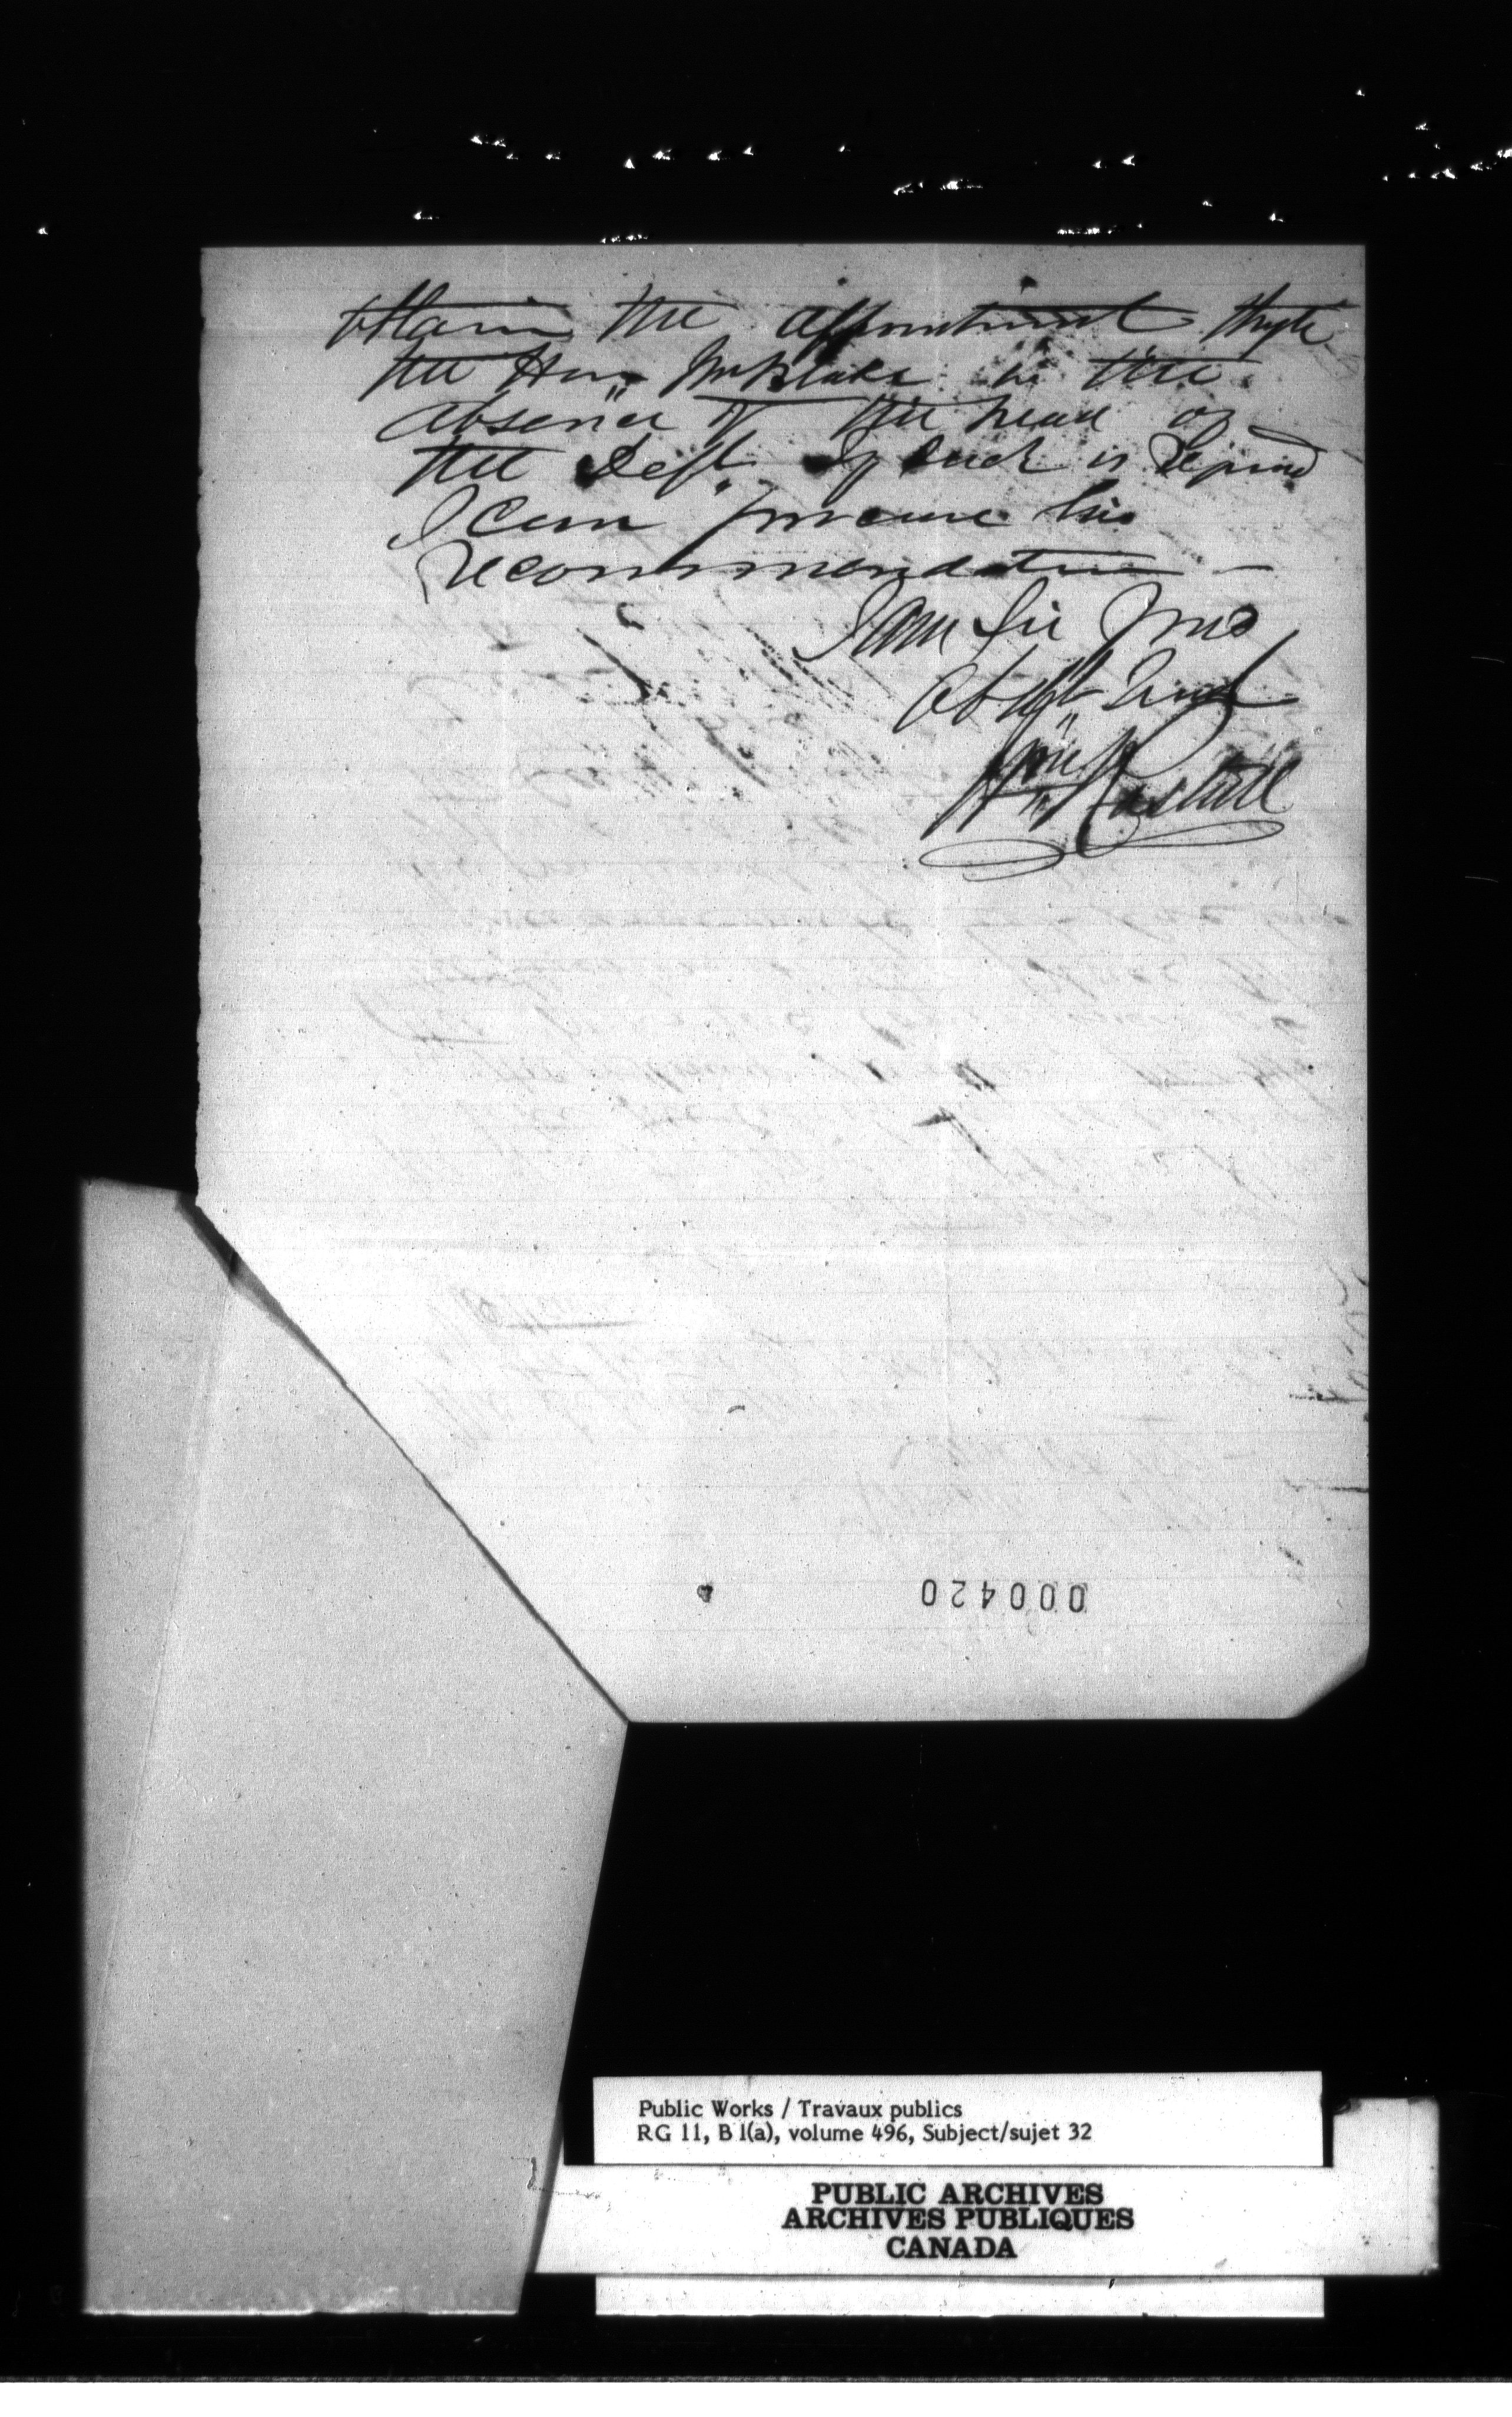 obtain the appointment thro
the Hon. Mr Blake in the
absence of the head of
the Dept. If such is required
I can procure his
recommendation —
I am Sir Yours
Obdt Servt
Wm Rastall
000420
Public Works / Travaux publics
RG 11, B 1(a), volume 496, Subject/sujet 32
PUBLIC ARCHIVES
ARCHIVES PUBLIQUES
CANADA